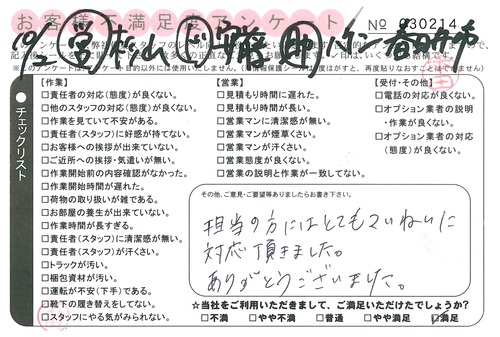 お客様不満足度アンケート No 030214
チェックリスト
【作業】
□責任者の対応(態度)が良くない。
□他のスタッフの対応(態度)が良くない。
□作業を見ていて不安がある。
□責任者(スタッフ)に好感が持てない。
□お客様への挨拶が出来ていない。
□ご近所への挨拶・気遣いが無い。
□作業開始前の内容確認がなかった。
□作業開始時間が遅れた。
□荷物の取り扱いが雑である。
□お部屋の養生が出来ていない。
□作業時間が長すぎる。
□責任者(スタッフ)に清潔感が無い。
□責任者(スタッフ)が汗くさい。
□トラックが汚い。
□梱包資材が汚い。
□運転が不安(下手)である。
□靴下の履き替えをしてない。
□スタッフにやる気がみられない。
【営業】
□見積もり時間に遅れた。
□見積もり時間が長い。
□営業マンに清潔感が無い。
□営業マンが煙草くさい。
□営業マンが汗くさい。
□営業態度が良くない。
□営業の説明と作業が一致してない。
【受付・その他】
□電話の対応が良くない。
□オプション業者の説明
・作業が良くない。
□オプション業者の対応
(態度)が良くない。
その他、ご意見・ご要望等ありましたらお書き下さい。
担当の方にはとてもていねいに
対応頂きました。
ありがとうございました。
☆当社をご利用いただきまして、ご満足いただけたでしょうか?
□不満 □やや不満 □普通 □やや満足 □満足